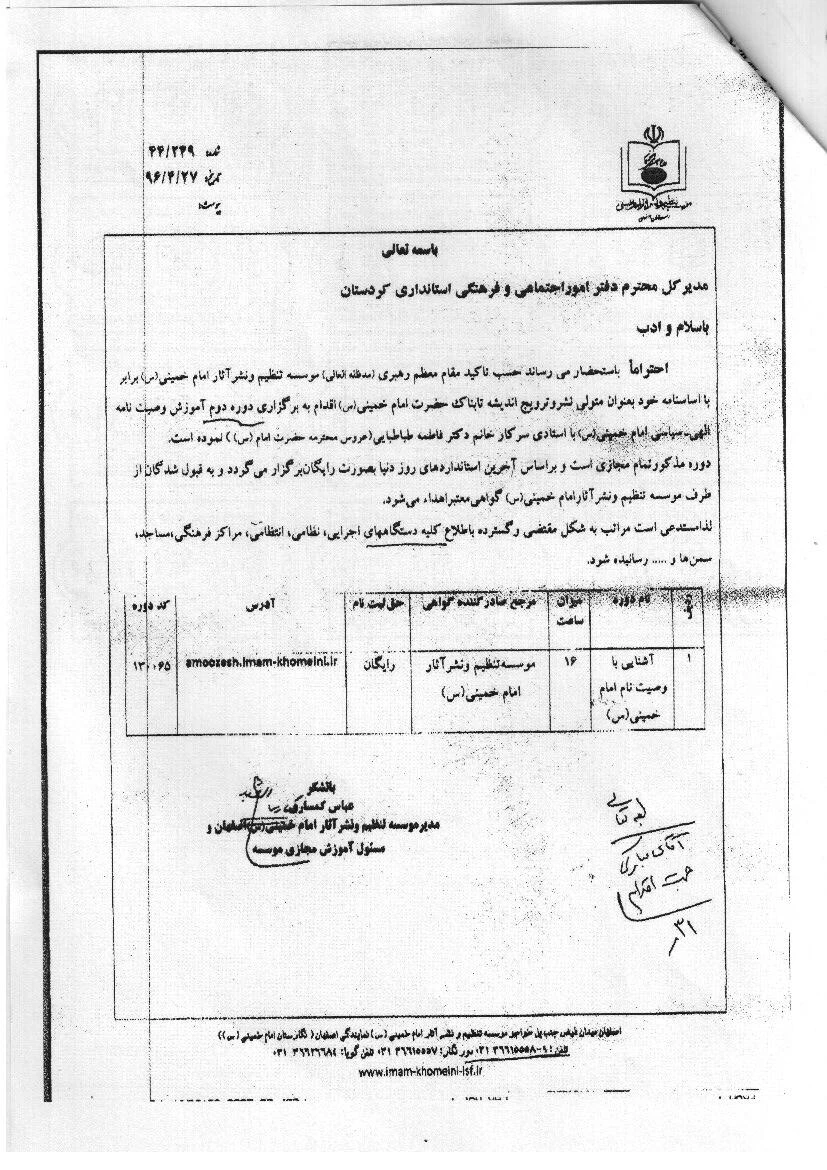 شماره: ۴۴/۲۴۹
تاریخ: ۹۶/۴/۲۷
پیوست:
باسمه تعالی
مدیرکل محترم دفتر اموراجتماعی و فرهنگی استانداری کردستان
باسلام و ادب
احتراماً باستحضار می رساند حسب تاکید مقام معظم رهبری (مدظله العالی) موسسه تنظیم ونشرآثار امام خمینی(س) برابر
با اساسنامه خود بعنوان متولی نشروترویج اندیشه تابناک حضرت امام خمینی(س) اقدام به برگزاری دوره دوم آموزش وصیت نامه
الهی-سیاسی امام خمینی(س) با استادی سرکار خانم دکتر فاطمه طباطبایی(عروس محترمه حضرت امام (س)) نموده است.
دوره مذکورتمام مجازی است و براساس آخرین استانداردهای روز دنیا بصورت رایگان‌برگزار می‌گردد و به قبول شدگان از
طرف موسسه تنظیم ونشرآثارامام خمینی(س) گواهی معتبراهداء می‌شود.
لذامستدعی است مراتب به شکل مقتضی وگسترده باطلاع کلیه دستگاههای اجرایی، نظامی، انتظامی، مراکز فرهنگی،مساجد،
سمن‌ها و ..... رسانیده شود.
ردیف نام دوره میزان ساعت مرجع صادرکننده گواهی حق ثبت نام آدرس کد دوره
۱ آشنایی با وصیت نام امام خمینی(س) ۱۶ موسسه‌تنظیم ونشرآثار امام خمینی(س) رایگان amoozesh.imam-khomeini.ir ۱۳۰۰۶۵
باتشکر
عباس کمساری
مدیرموسسه تنظیم ونشرآثار امام خمینی(س)اصفهان و
مسئول آموزش مجازی موسسه
آقای
جهت اقدام
۳۱
اصفهان میدان فیض جنب پل خواجو موسسه تنظیم و نشر آثار امام خمینی (س) نمایندگی اصفهان ( نگارستان امام خمینی (س))
تلفن: ۹-۳۶۶۱۵۵۵۸ ۰۳۱ دورنگار: ۳۶۶۱۵۵۵۷ ۰۳۱ تلفن گویا: ۳۶۶۲۶۶۸۴ ۰۳۱
www.imam-khomeini-isf.ir